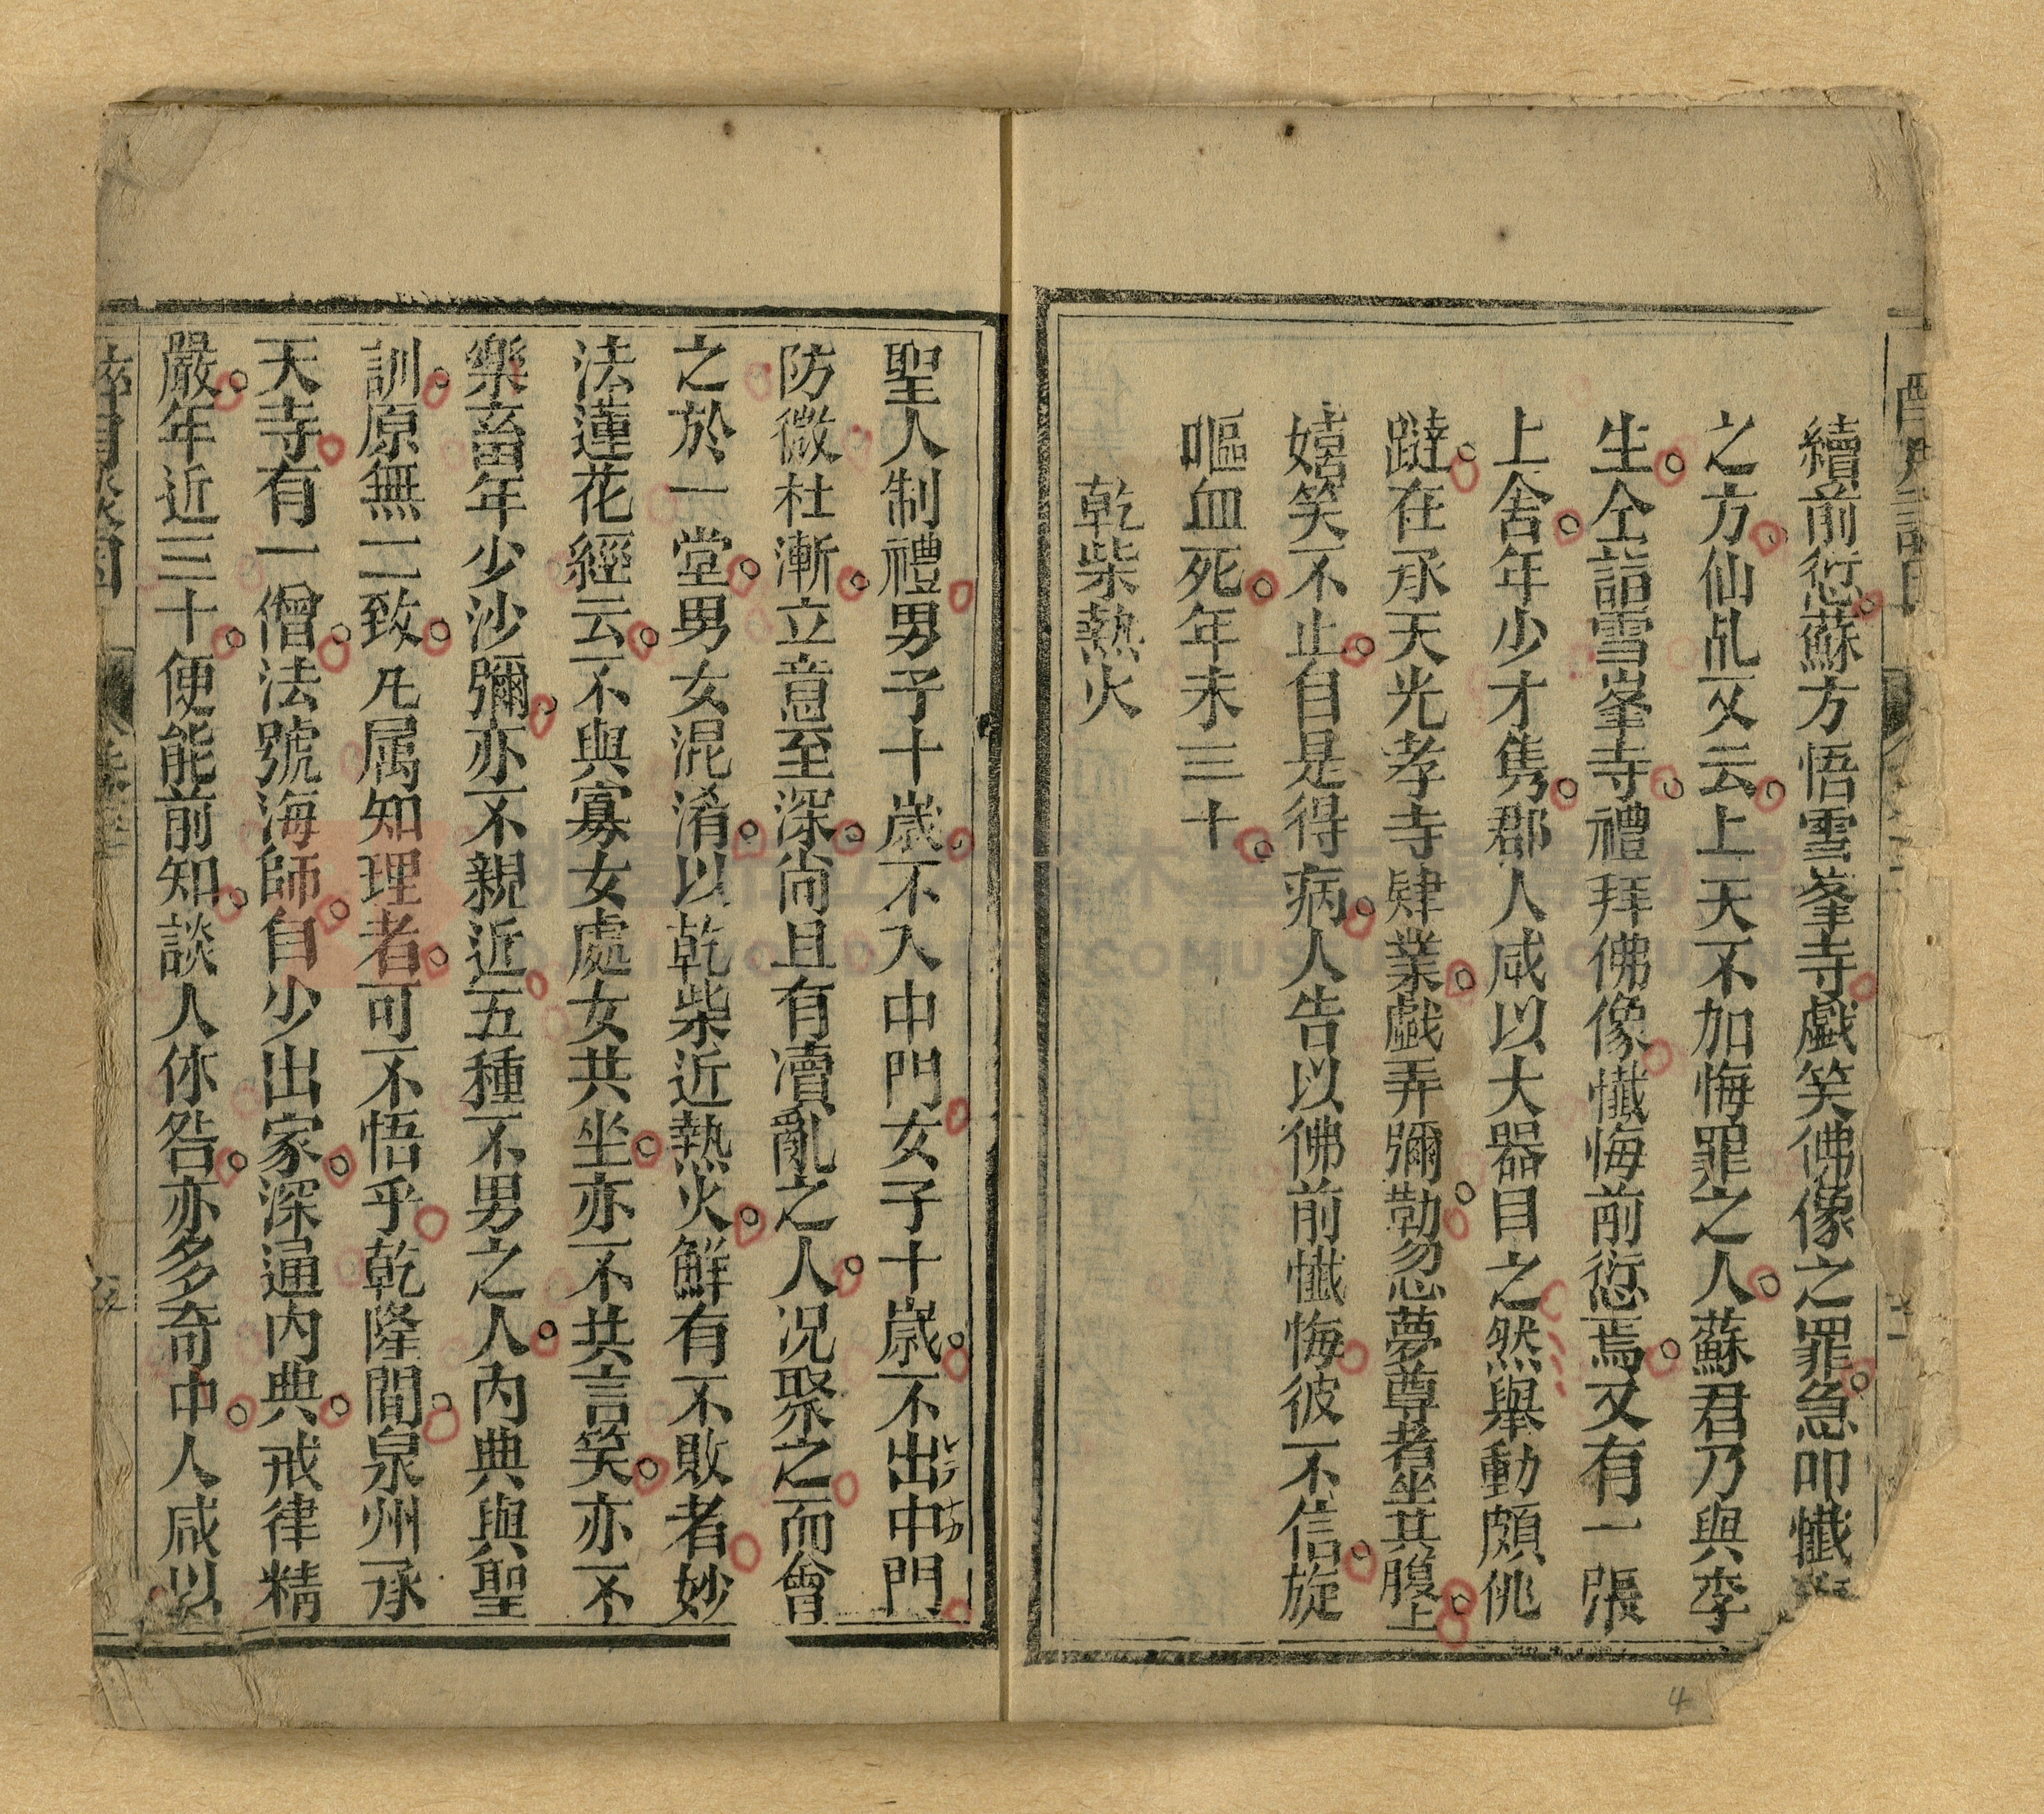 續前愆蘇方悟雪峯寺戲笑佛像之罪急叩懺
之方仙乩又云上天不加悔罪之人蘇君乃與李
生仝詣雪峯寺禮拜佛像懺悔前愆焉又有一張
上舍年少才雋郡人咸以大器目之然舉動頗佻
躂在承天光孝寺肄業戲弄彌勒忽夢尊者坐其腹上
嬉笑不止自是得病人告以佛前懺悔彼不信旋
嘔血死年未三十
乾柴熱火
聖人制禮男子十歲不入中門女子十歲不出中門
防微杜漸立意至深尚且有瀆亂之人况聚之而會
之於一堂男女混淆以乾柴近熱火鮮有不敗者妙
法蓮花經云不與寡女處女共坐亦不共言笑亦不
樂畜年少沙彌亦不親近五種不男之人內典與聖
訓原無二致凡属知理者可不悟乎乾隆間泉州承
天寺有一僧法號海師自少出家深通內典戒律精
嚴年近三十便能前知談人休咎亦多奇中人咸以
4